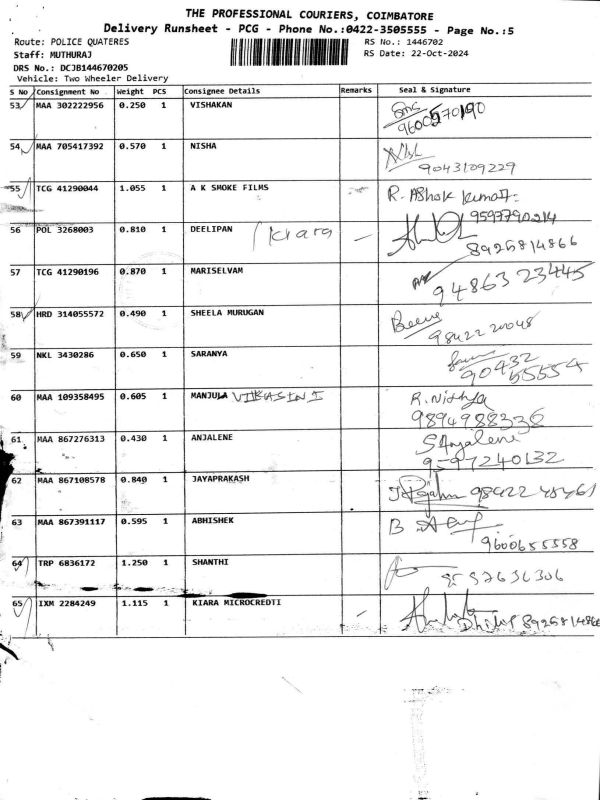 THE PROFESSIONAL COURIERS, COIMBATORE
Delivery Runsheet - PCG - Phone No.:0422-3505555 - Page No.:5
Route: POLICE QUATERES RS No.: 1446702
Staff: MUTHURAJ RS Date: 22-Oct-2024
DRS No.: DCJB144670205
Vehicle: Two Wheeler Delivery
S No Consignment No Weight PCS Consignee Details Remarks Seal & Signature
53 MAA 302222956 0.250 1 VISHAKAN
54 MAA 705417392 0.570 1 NISHA
9043109229
55 TCG 41290044 1.055 1 A K SMOKE FILMS R. Ashok kumar
9597790214
56 POL 3268003 0.810 1 DEELIPAN kiara
8925814866
57 TCG 41290196 0.870 1 MARISELVAM
94863 23445
58 HRD 314055572 0.490 1 SHEELA MURUGAN
98422 20048
59 NKL 3430286 0.650 1 SARANYA
90432
55554
60 MAA 109358495 0.605 1 MANJULA R. Nithya
9894988336
61 MAA 867276313 0.430 1 ANJALENE S Anjalene
9597240132
62 MAA 867108578 0.840 1 JAYAPRAKASH
63 MAA 867391117 0.595 1 ABHISHEK B
9600655558
64 TRP 6836172 1.250 1 SHANTHI
65 IXM 2284249 1.115 1 KIARA MICROCREDTI
Dhilip 8925814866